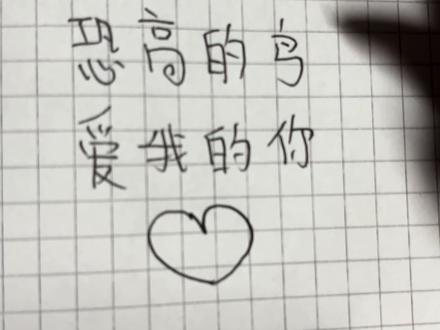 恐高的鸟
爱我的你